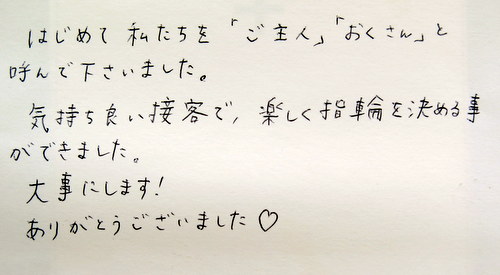 はじめて 私たちを 「ご主人」「おくさん」と
呼んで下さいました。
気持ち良い接客で、楽しく指輪を決める事
ができました。
大事にします!
ありがとうございました♡